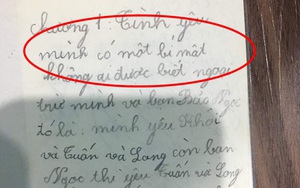 Chương 1: Tình yêu
mình có một bí mật
không ai được biết ngoại
trừ mình và bạn Bảo Ngọc
đó là: mình yêu Khôi
và Tuấn và Long còn bạn
Ngọc thì yêu Tuấn và
Long